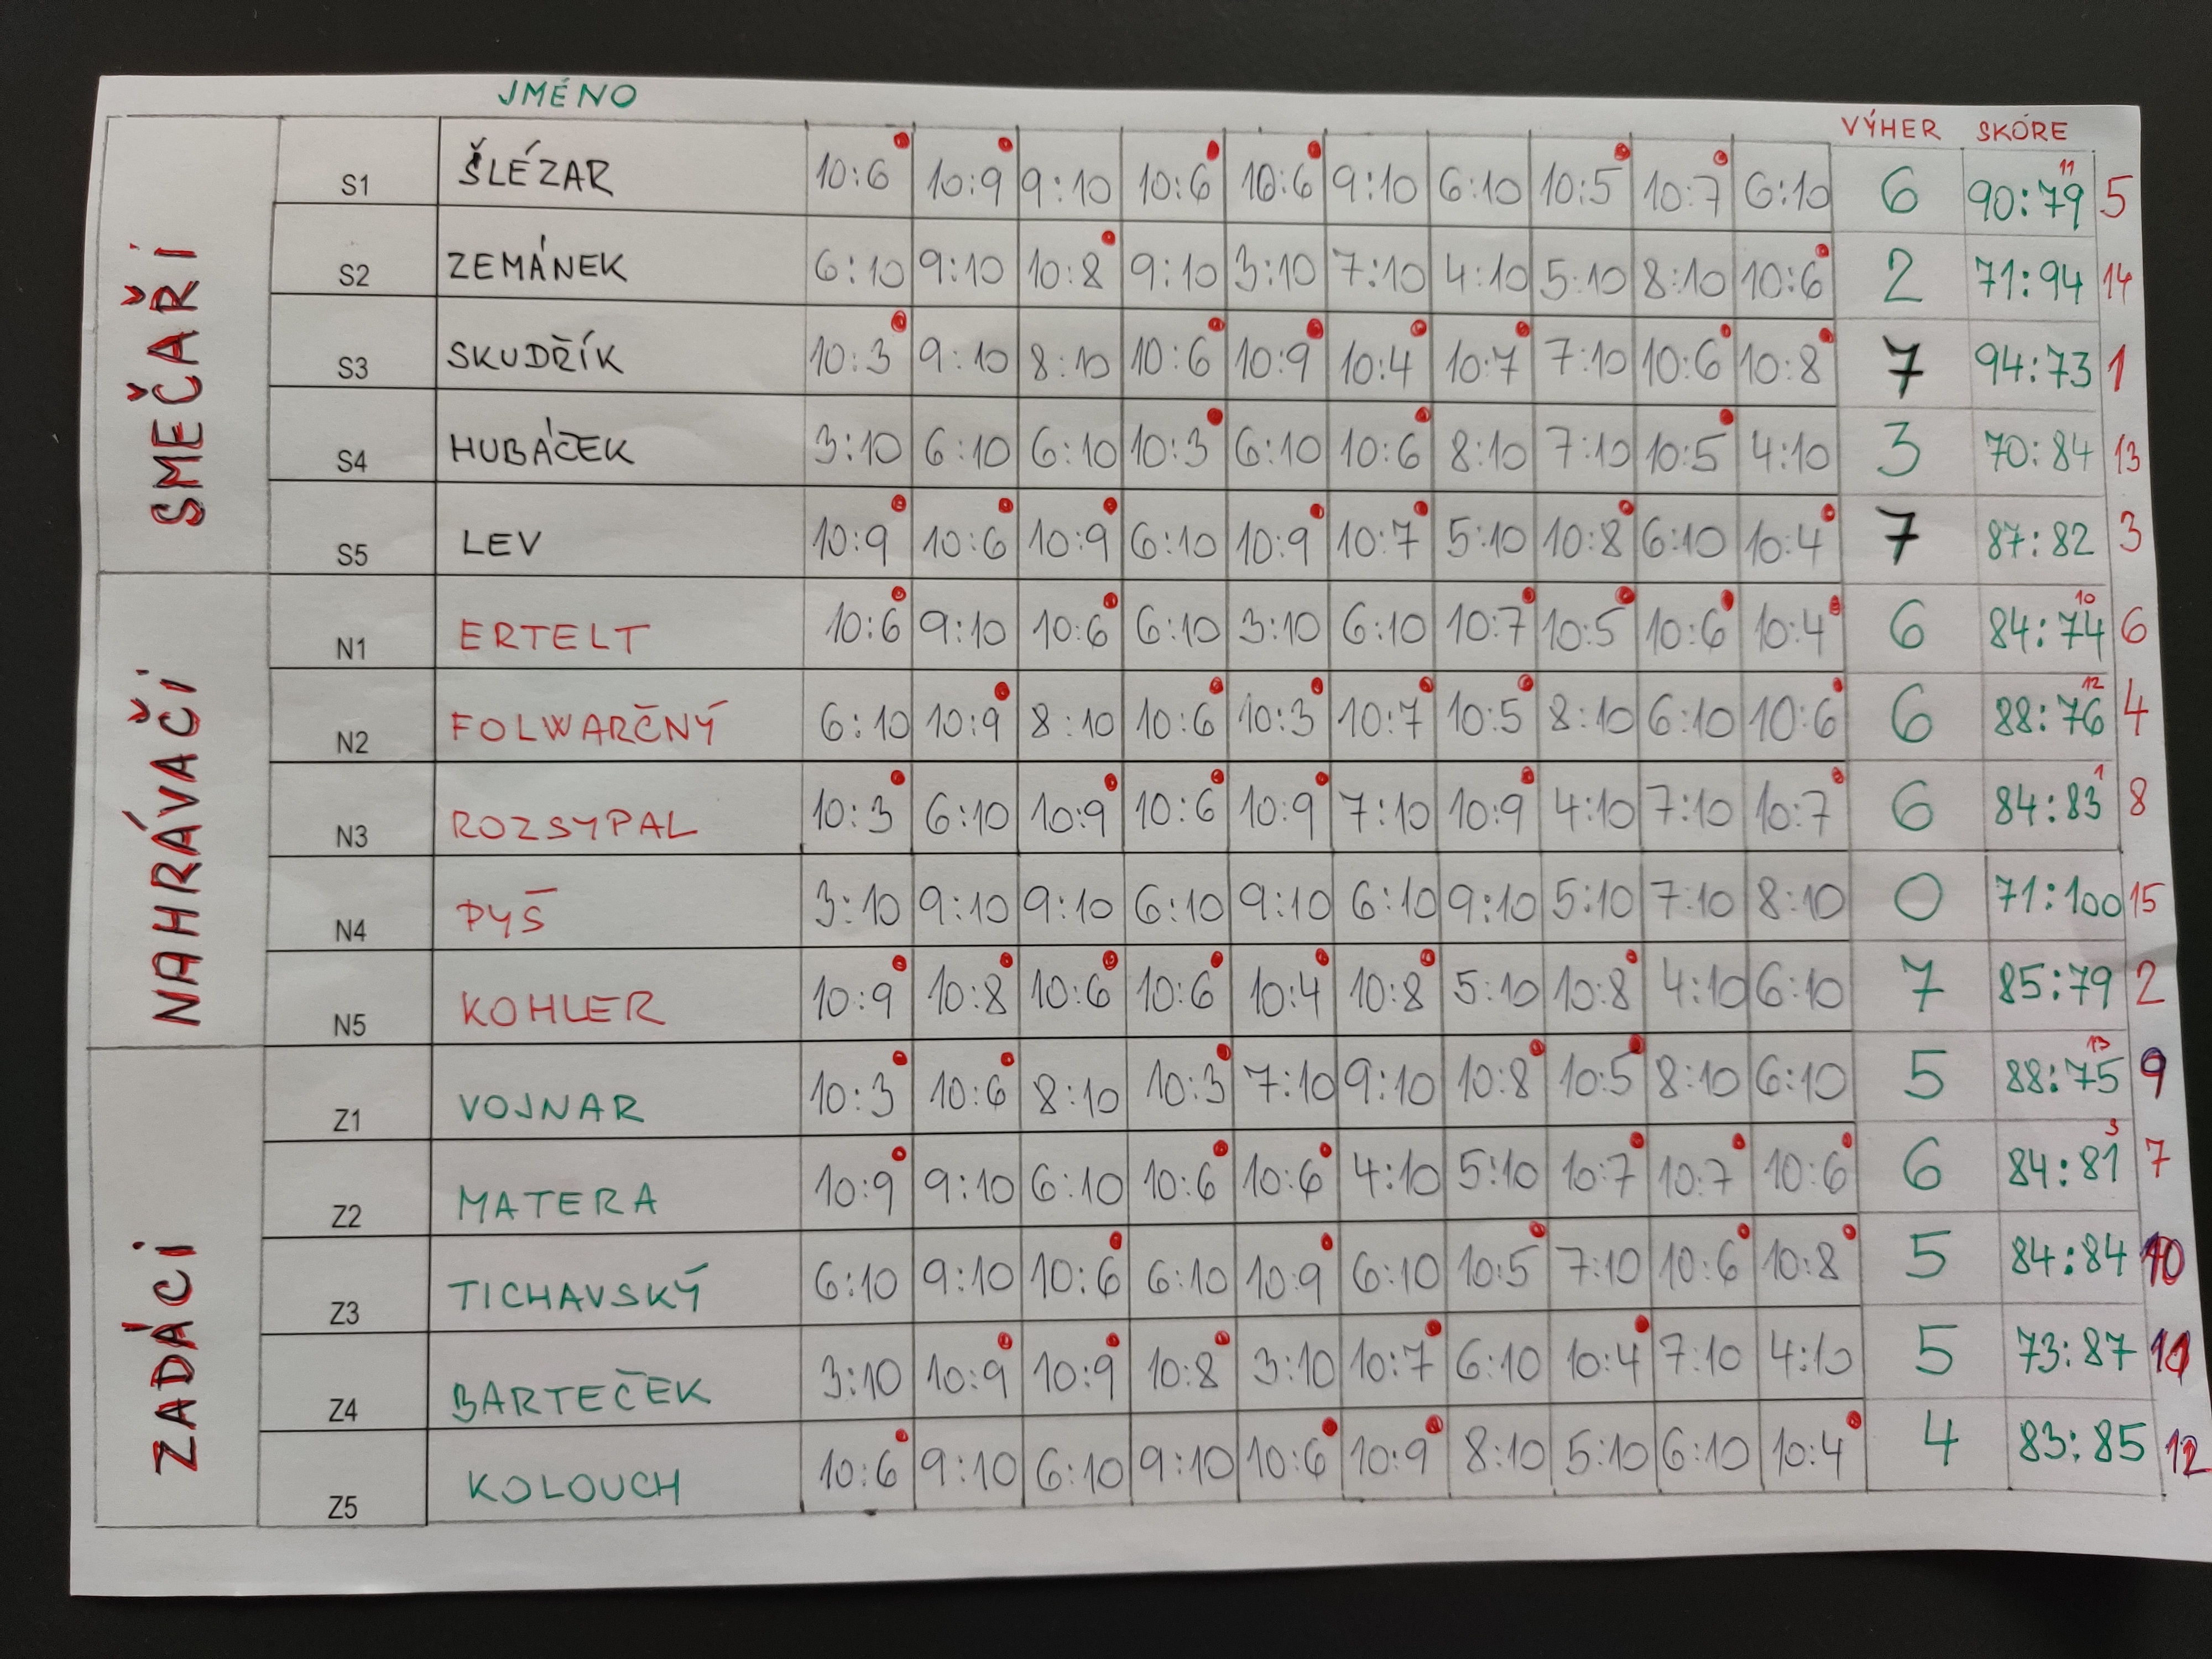 JMÉNO VÝHER SKÓRE
SMEČAŘI
S1 ŠLÉZAR 10:6 10:9 9:10 10:6 10:6 9:10 6:10 10:5 10:7 6:10 6 90:79 11 5
S2 ZEMÁNEK 6:10 9:10 10:8 9:10 3:10 7:10 4:10 5:10 8:10 10:6 2 71:94 14
S3 SKUDŘÍK 10:3 9:10 8:10 10:6 10:9 10:4 10:7 7:10 10:6 10:8 7 94:73 1
S4 HUBÁČEK 3:10 6:10 6:10 10:3 6:10 10:6 8:10 7:10 10:5 4:10 3 70:84 13
S5 LEV 10:9 10:6 10:9 6:10 10:9 10:7 5:10 10:8 6:10 10:4 7 87:82 3
NAHRÁVAČI
N1 ERTELT 10:6 9:10 10:6 6:10 3:10 6:10 10:7 10:5 10:6 10:4 6 84:74 10 6
N2 FOLWARČNÝ 6:10 10:9 8:10 10:6 10:3 10:7 10:5 8:10 6:10 10:6 6 88:76 12 4
N3 ROZSYPAL 10:3 6:10 10:9 10:6 10:9 7:10 10:9 4:10 7:10 10:7 6 84:83 1 8
N4 PYŠ 3:10 9:10 9:10 6:10 9:10 6:10 9:10 5:10 7:10 8:10 0 71:100 15
N5 KOHLER 10:9 10:8 10:6 10:6 10:4 10:8 5:10 10:8 4:10 6:10 7 85:79 2
ZADÁCI
Z1 VOJNAR 10:3 10:6 8:10 10:3 7:10 9:10 10:8 10:5 8:10 6:10 5 88:75 13 9
Z2 MATERA 10:9 9:10 6:10 10:6 10:6 4:10 5:10 10:7 10:7 10:6 6 84:81 3 7
Z3 TICHAVSKÝ 6:10 9:10 10:6 6:10 10:9 6:10 10:5 7:10 10:6 10:8 5 84:84 10
Z4 BARTEČEK 3:10 10:9 10:9 10:8 3:10 10:7 6:10 10:4 7:10 4:10 5 73:87 11
Z5 KOLOUCH 10:6 9:10 6:10 9:10 10:6 10:9 8:10 5:10 6:10 10:4 4 83:85 12